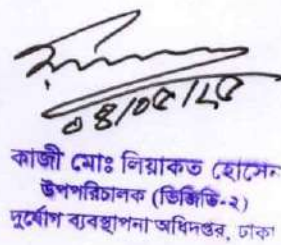 কাজী মোঃ লিয়াকত হোসেন
উপপরিচালক (ভিজিডি-২)
দুর্যোগ ব্যবস্থাপনা অধিদপ্তর, ঢাকা